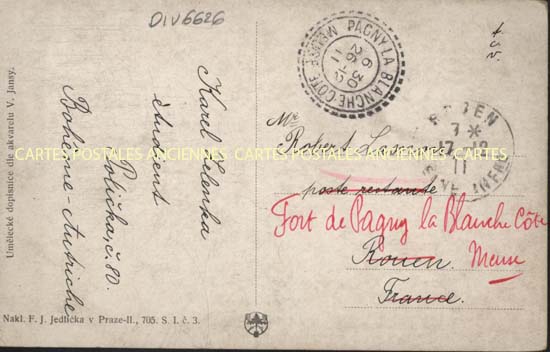 DIV6626
t.s.v.
Umělecké dopisnice dle akvarelu V. Jansy.
Karel Zelenka
student
Polička, č. 80.
Bohême - Autriche
PAGNY-LA-BLANCHE-CÔTE MEUSE
6 30
26 -12
11
ROUEN
7 *
11
SEINE INFRE
Mr
Robert
poste restante
Fort de Pagny la Blanche Côte
Rouen. Meuse
France.
CARTES POSTALES ANCIENNES CARTES POSTALES ANCIENNES CARTES POSTALES ANCIENNES
Nakl. F. J. Jedlička v Praze-II., 705. S. I. č. 3.